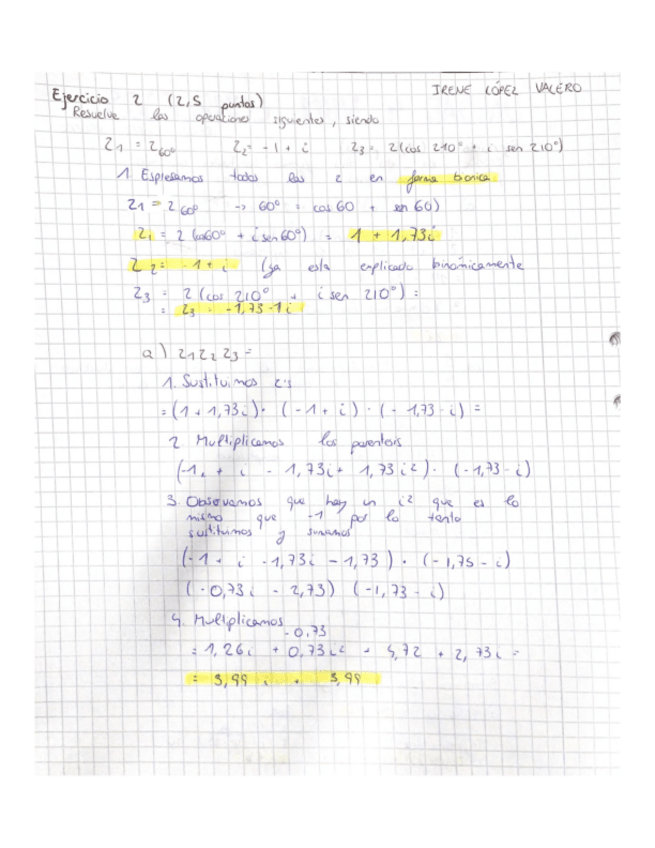 IRENE LÓPEZ VALERO
Ejercicio 2 (2,5 puntos)
Resuelve las operaciones siguientes, siendo
Z1 = 2 60º Z2 = -1 + i Z3 = 2(cos 210º + i sen 210º)
1. Expresamos todos las z en forma bionica
Z1 = 2 60º -> 60º = cos 60 + sen 60)
Z1 = 2 (cos60º + i sen 60º) = 1 + 1,73i
Z2 = -1 + i (ya esta explicado binomicamente
Z3 = 2 (cos 210º + i sen 210º) =
= Z3 = -1,73 -1i
a) Z1 Z2 Z3 =
1. Sustituimos z's
= (1 + 1,73i) · (-1 + i) · (-1,73 - i) =
2. Multiplicamos los parentesis
(-1 + i - 1,73i + 1,73 i²) · (-1,73 - i)
3. Observamos que hay un i² que es lo
mismo que -1 por lo tanto
sustituimos y sumamos
(-1 + i -1,73i - 1,73) · (-1,75 - i)
(-0,73i - 2,73) (-1,73 - i)
4. Multiplicamos
-0,73
= 1,26i + 0,73i² + 4,72 + 2,73i =
= 3,99 i + 3,99